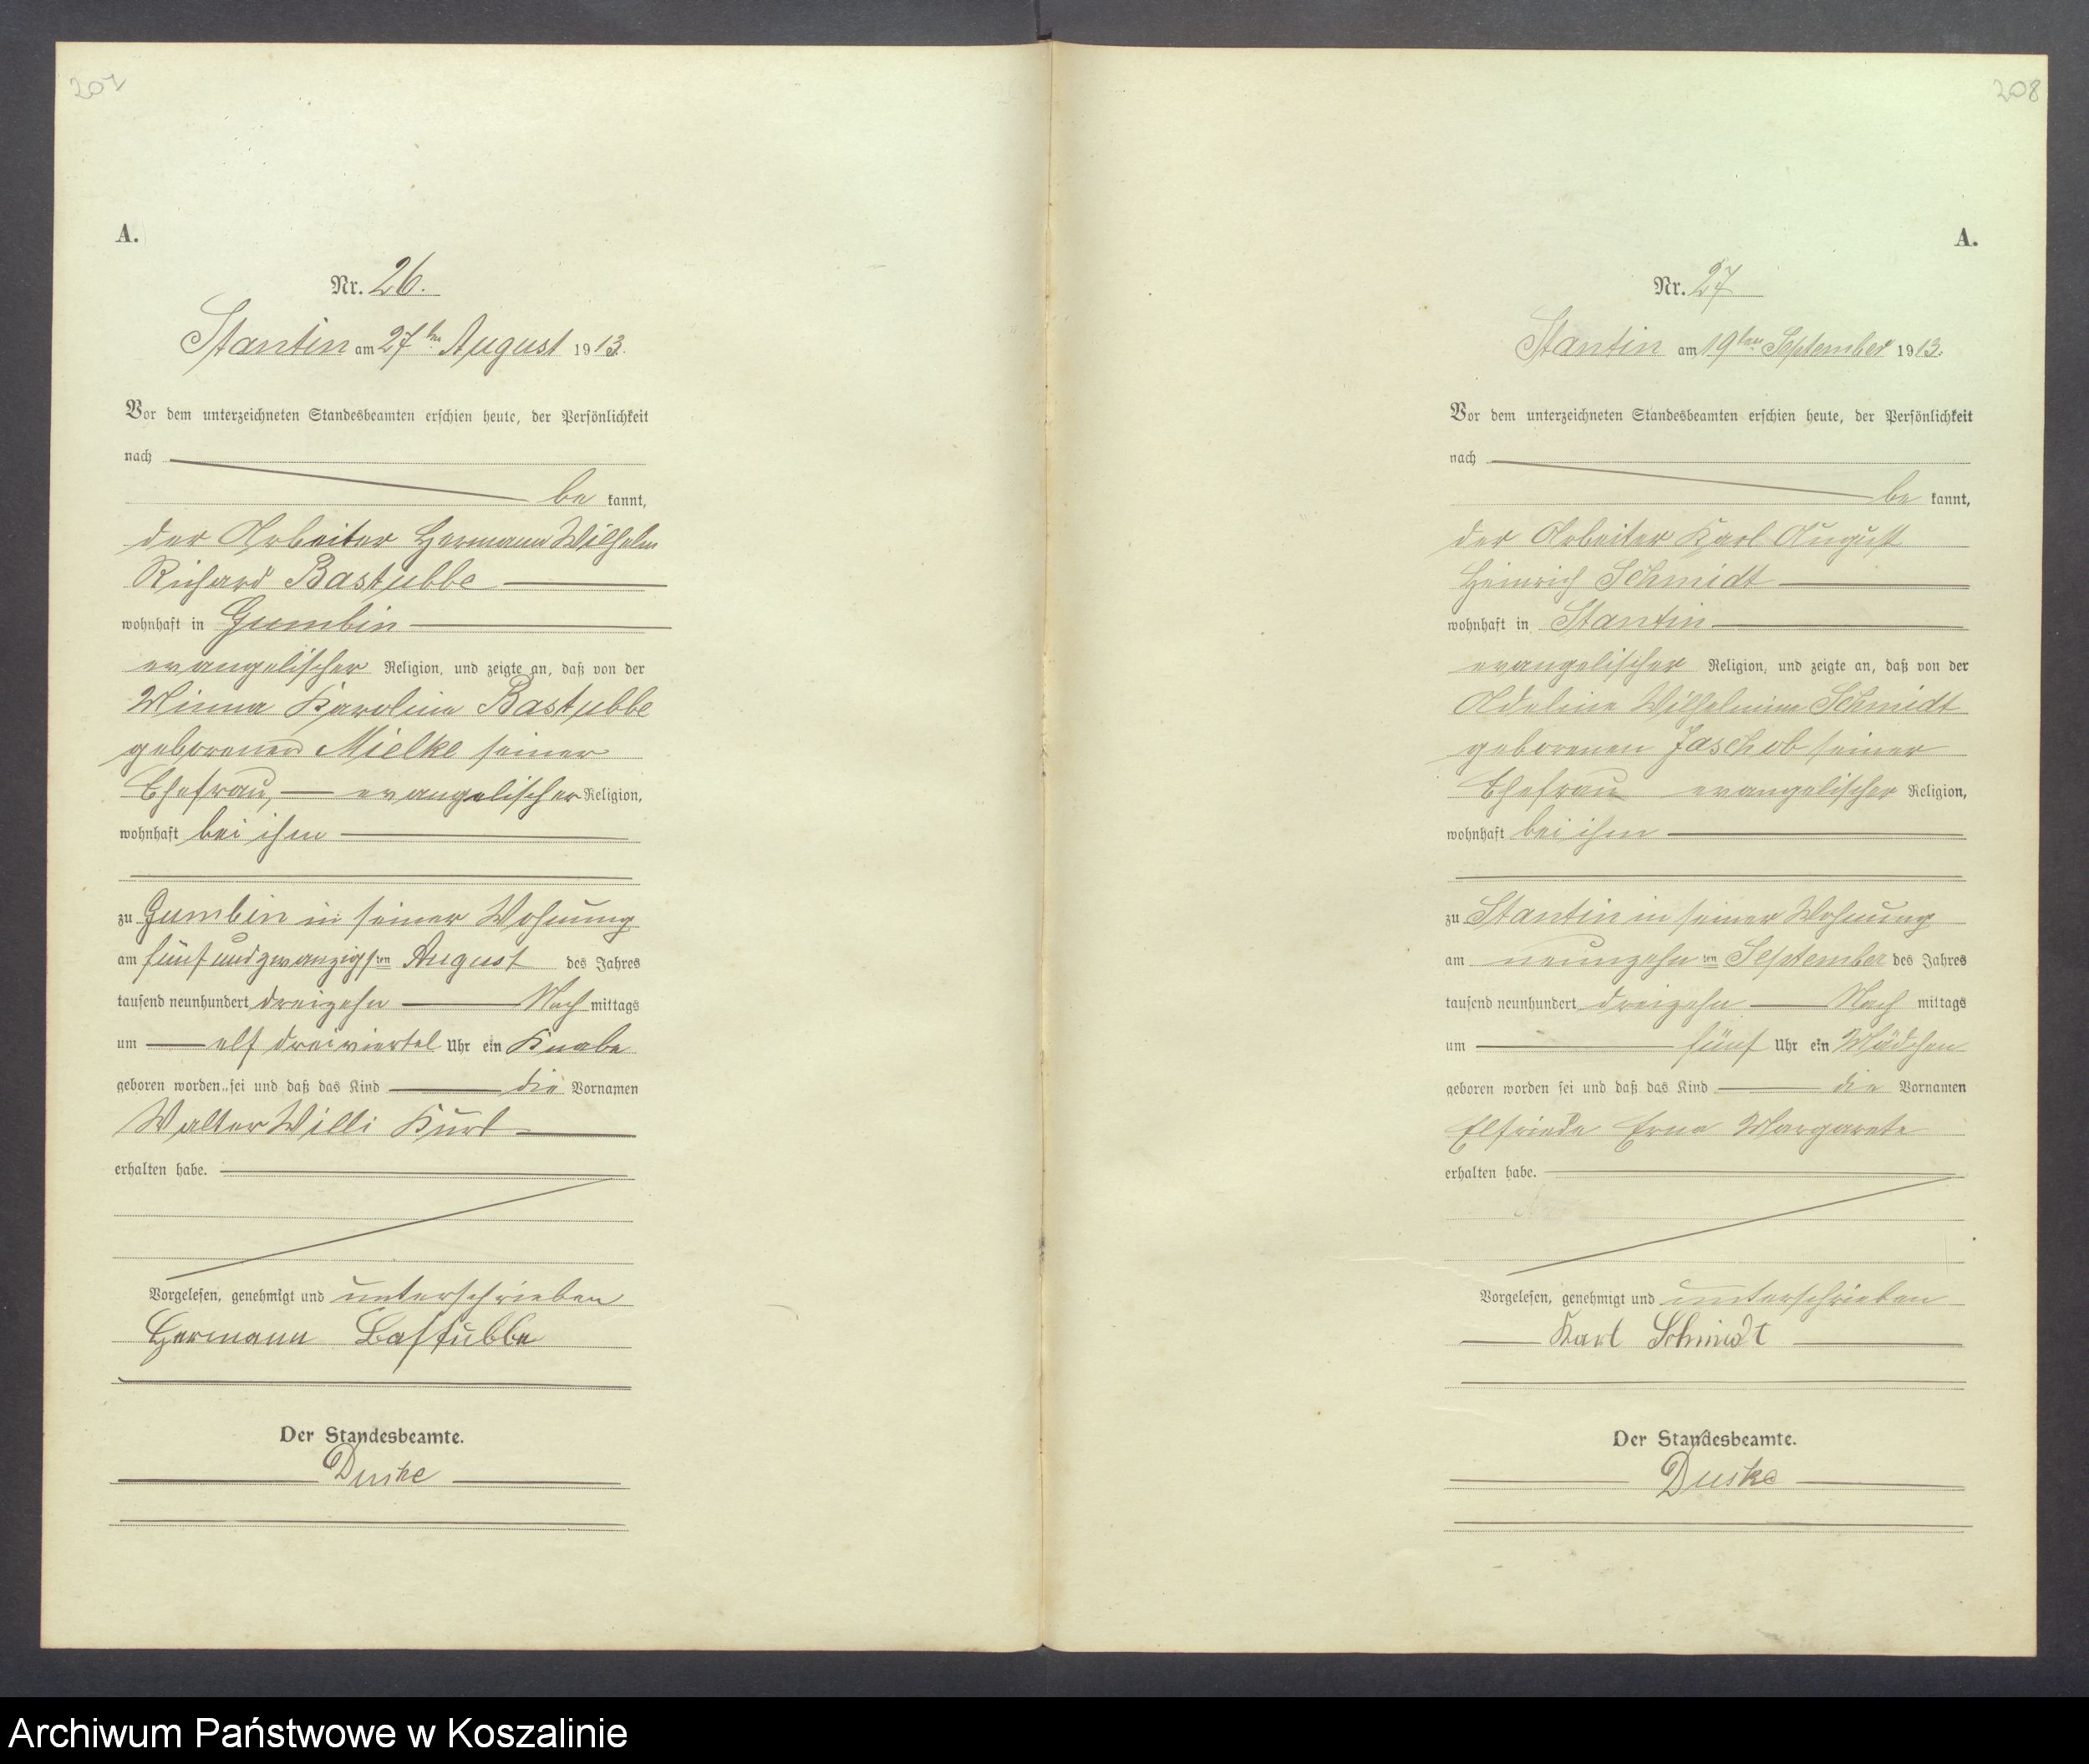 207
A.
Nr. 26.
Stantin am 27ten August 1913.
Vor dem unterzeichneten Standesbeamten erschien heute, der Persönlichkeit
nach
be kannt,
der Arbeiter Hermann Wilhelm
Richard Bastubbe
wohnhaft in Gumbin
evangelischer Religion, und zeigte an, daß von der
Minna Karoline Bastubbe
geborenen Mielke seiner
Ehefrau, evangelischer Religion,
wohnhaft bei ihm
zu Gumbin in seiner Wohnung
am fünfundzwanzigsten August des Jahres
tausend neunhundert dreizehn Nach mittags
um elf dreiviertel Uhr ein Knabe
geboren worden sei und daß das Kind die Vornamen
Walter Willi Kurt
erhalten habe.
Vorgelesen, genehmigt und unterschrieben
Hermann Bastubbe
Der Standesbeamte.
Duske
208
A.
Nr. 27
Stantin am 19ten September 1913.
Vor dem unterzeichneten Standesbeamten erschien heute, der Persönlichkeit
nach
be kannt,
der Arbeiter Karl August
Heinrich Schmidt
wohnhaft in Stantin
evangelischer Religion, und zeigte an, daß von der
Adeline Wilhelmine Schmidt
geborenen Jaschob seiner
Ehefrau evangelischer Religion,
wohnhaft bei ihm
zu Stantin in seiner Wohnung
am neunzehnten September des Jahres
tausend neunhundert dreizehn Nach mittags
um fünf Uhr ein Mädchen
geboren worden sei und daß das Kind die Vornamen
Elfriede Erna Margarete
erhalten habe.
Vorgelesen, genehmigt und unterschrieben
Karl Schmidt
Der Standesbeamte.
Duske
Archiwum Państwowe w Koszalinie